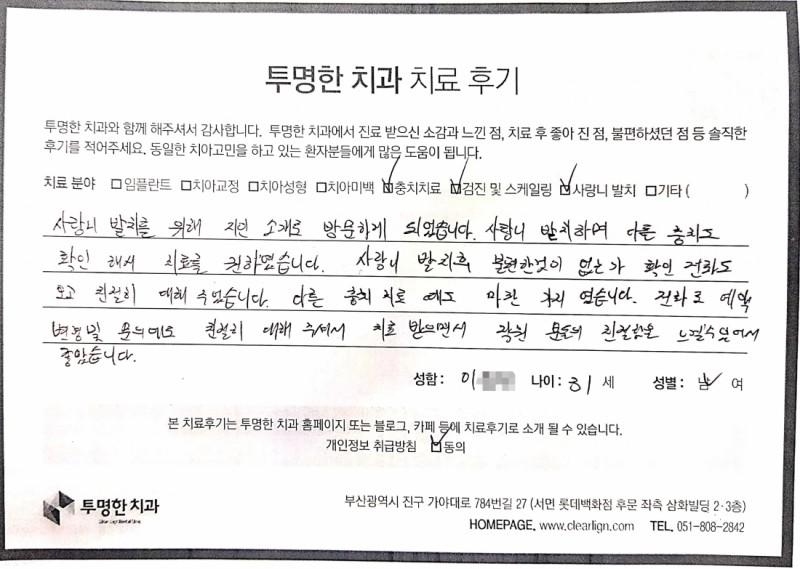 투명한 치과 치료 후기
투명한 치과와 함께 해주셔서 감사합니다. 투명한 치과에서 진료 받으신 소감과 느낀 점, 치료 후 좋아 진 점, 불편하셨던 점 등 솔직한
후기를 적어주세요. 동일한 치아고민을 하고 있는 환자분들에게 많은 도움이 됩니다.
치료 분야 □임플란트 □치아교정 □치아성형 □치아미백 ☑충치치료 ☑검진 및 스케일링 ☑사랑니 발치 □기타 ( )
사랑니 발치를 위해 지인 소개로 방문하게 되었습니다. 사랑니 발치하며 다른 충치도
확인 해서 치료를 권하였습니다. 사랑니 발치후 불편한것이 없는가 확인 전화도
오고 친절히 대해 주었습니다. 다른 충치 치료 에도 마찬 가지 였습니다. 전화로 예약
변경및 문의에도 친절히 대해 주셔서 치료 받으면서 병원 분들의 친절함을 느낄수있어서
좋았습니다.
성함: 이 나이: 31 세 성별: 남 여
본 치료후기는 투명한 치과 홈페이지 또는 블로그, 카페 등에 치료후기로 소개 될 수 있습니다.
개인정보 취급방침 ☑동의
투명한 치과
부산광역시 진구 가야대로 784번길 27 (서면 롯데백화점 후문 좌측 삼화빌딩 2·3층)
HOMEPAGE. www.clearlign.com TEL. 051-808-2842